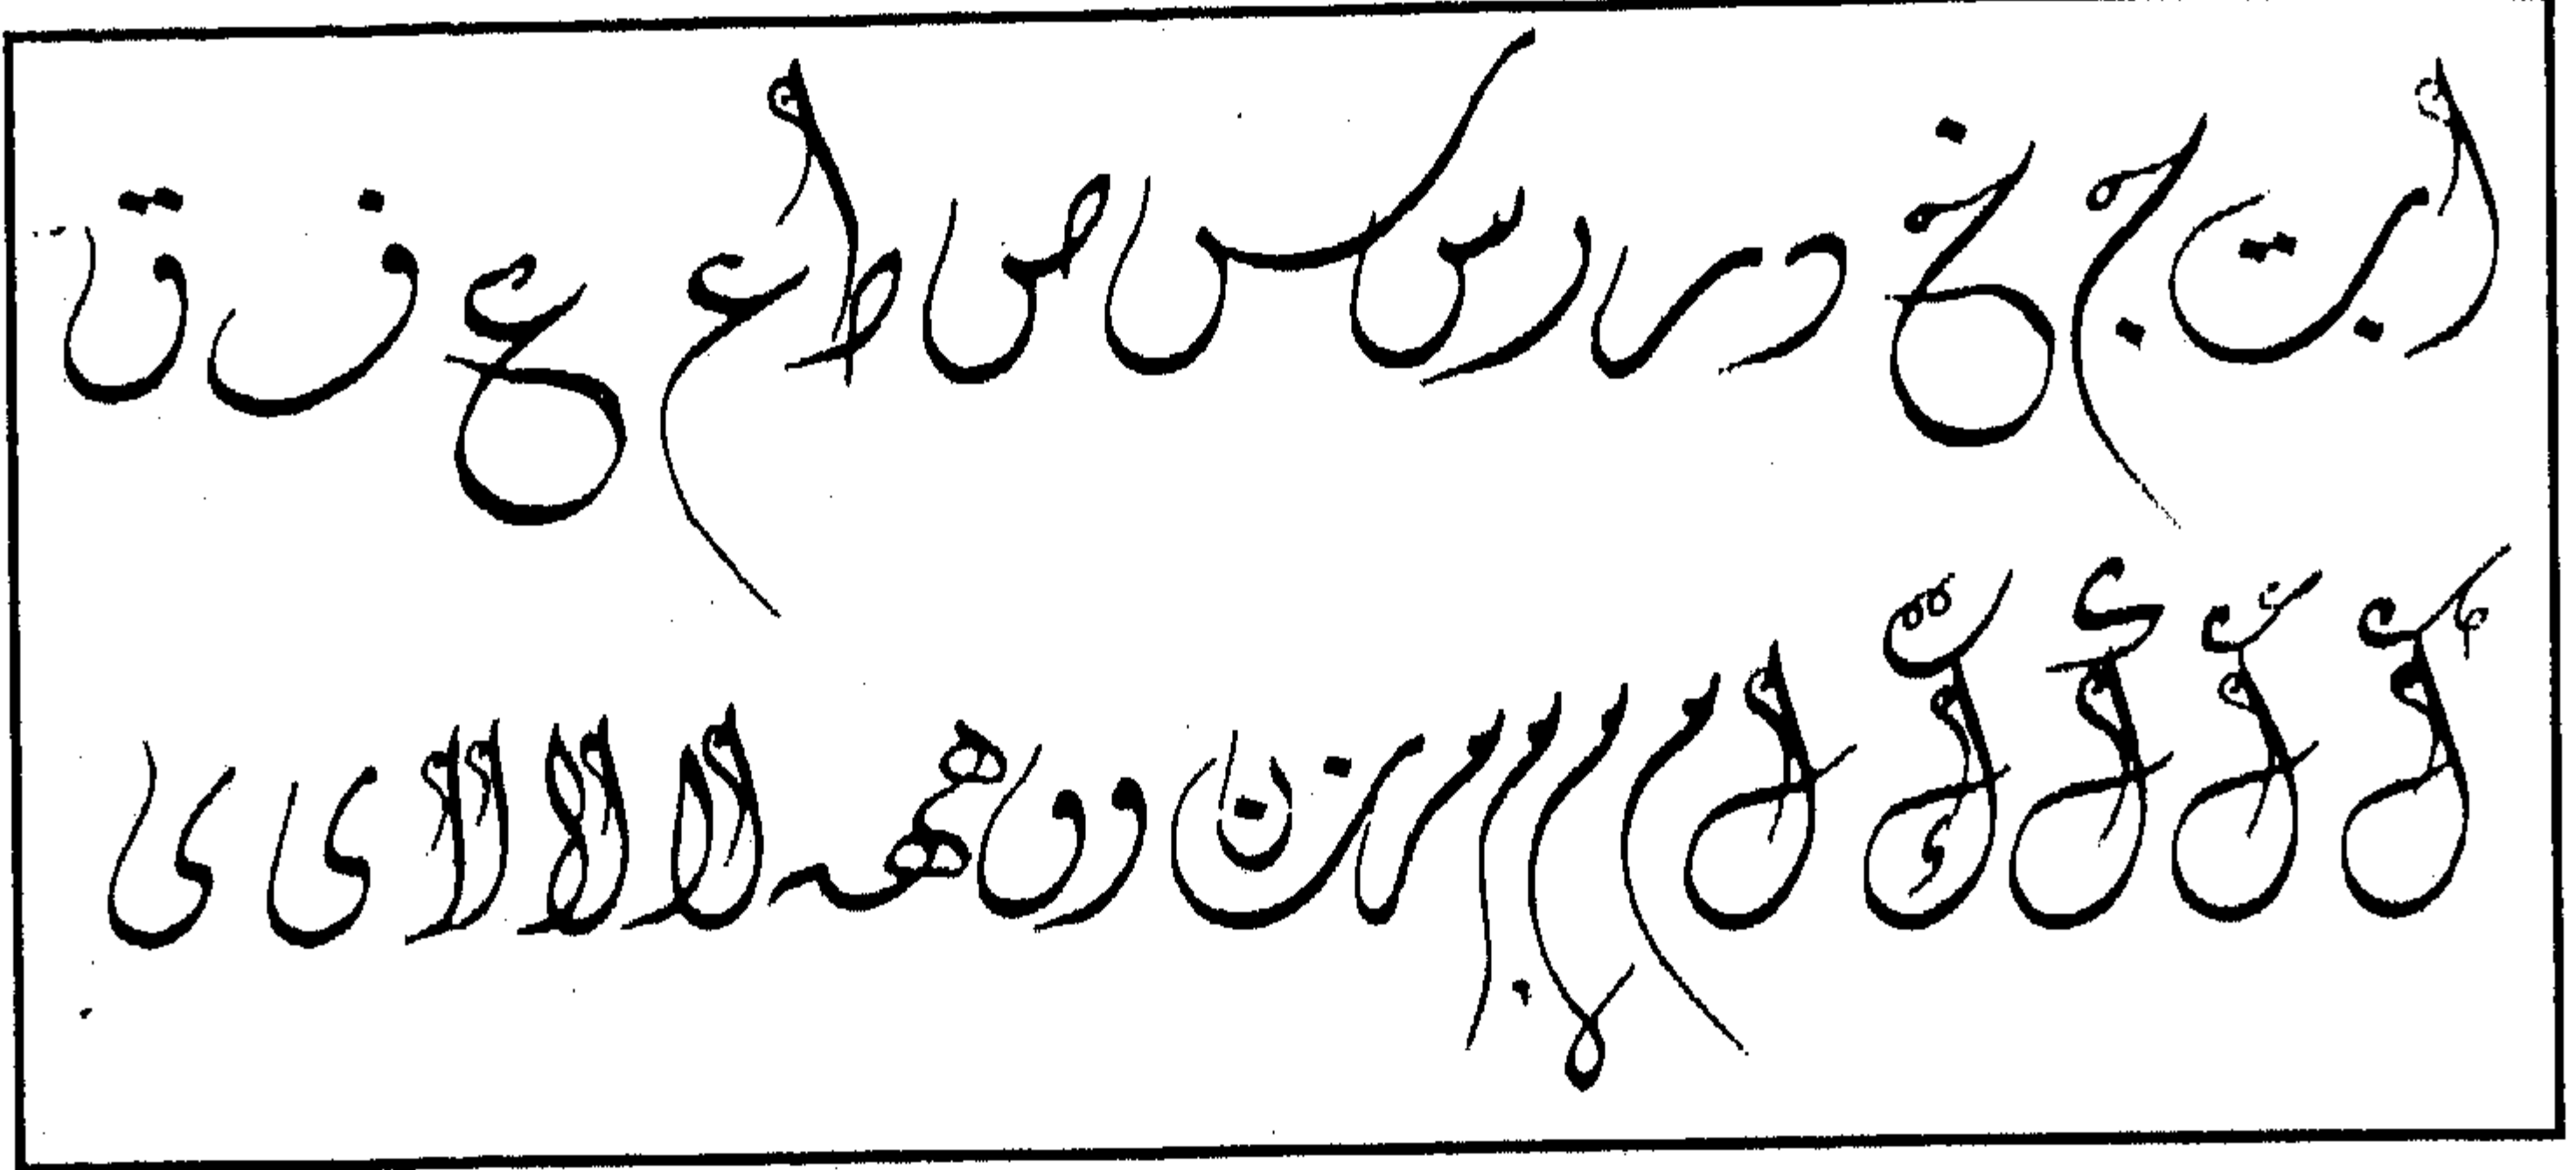 ا ب ت ج خ د ر ر س س ص ط ع ع ف ق
ك ك ك ك ل م م م م ن ن و و ه لا لا لا ى ى